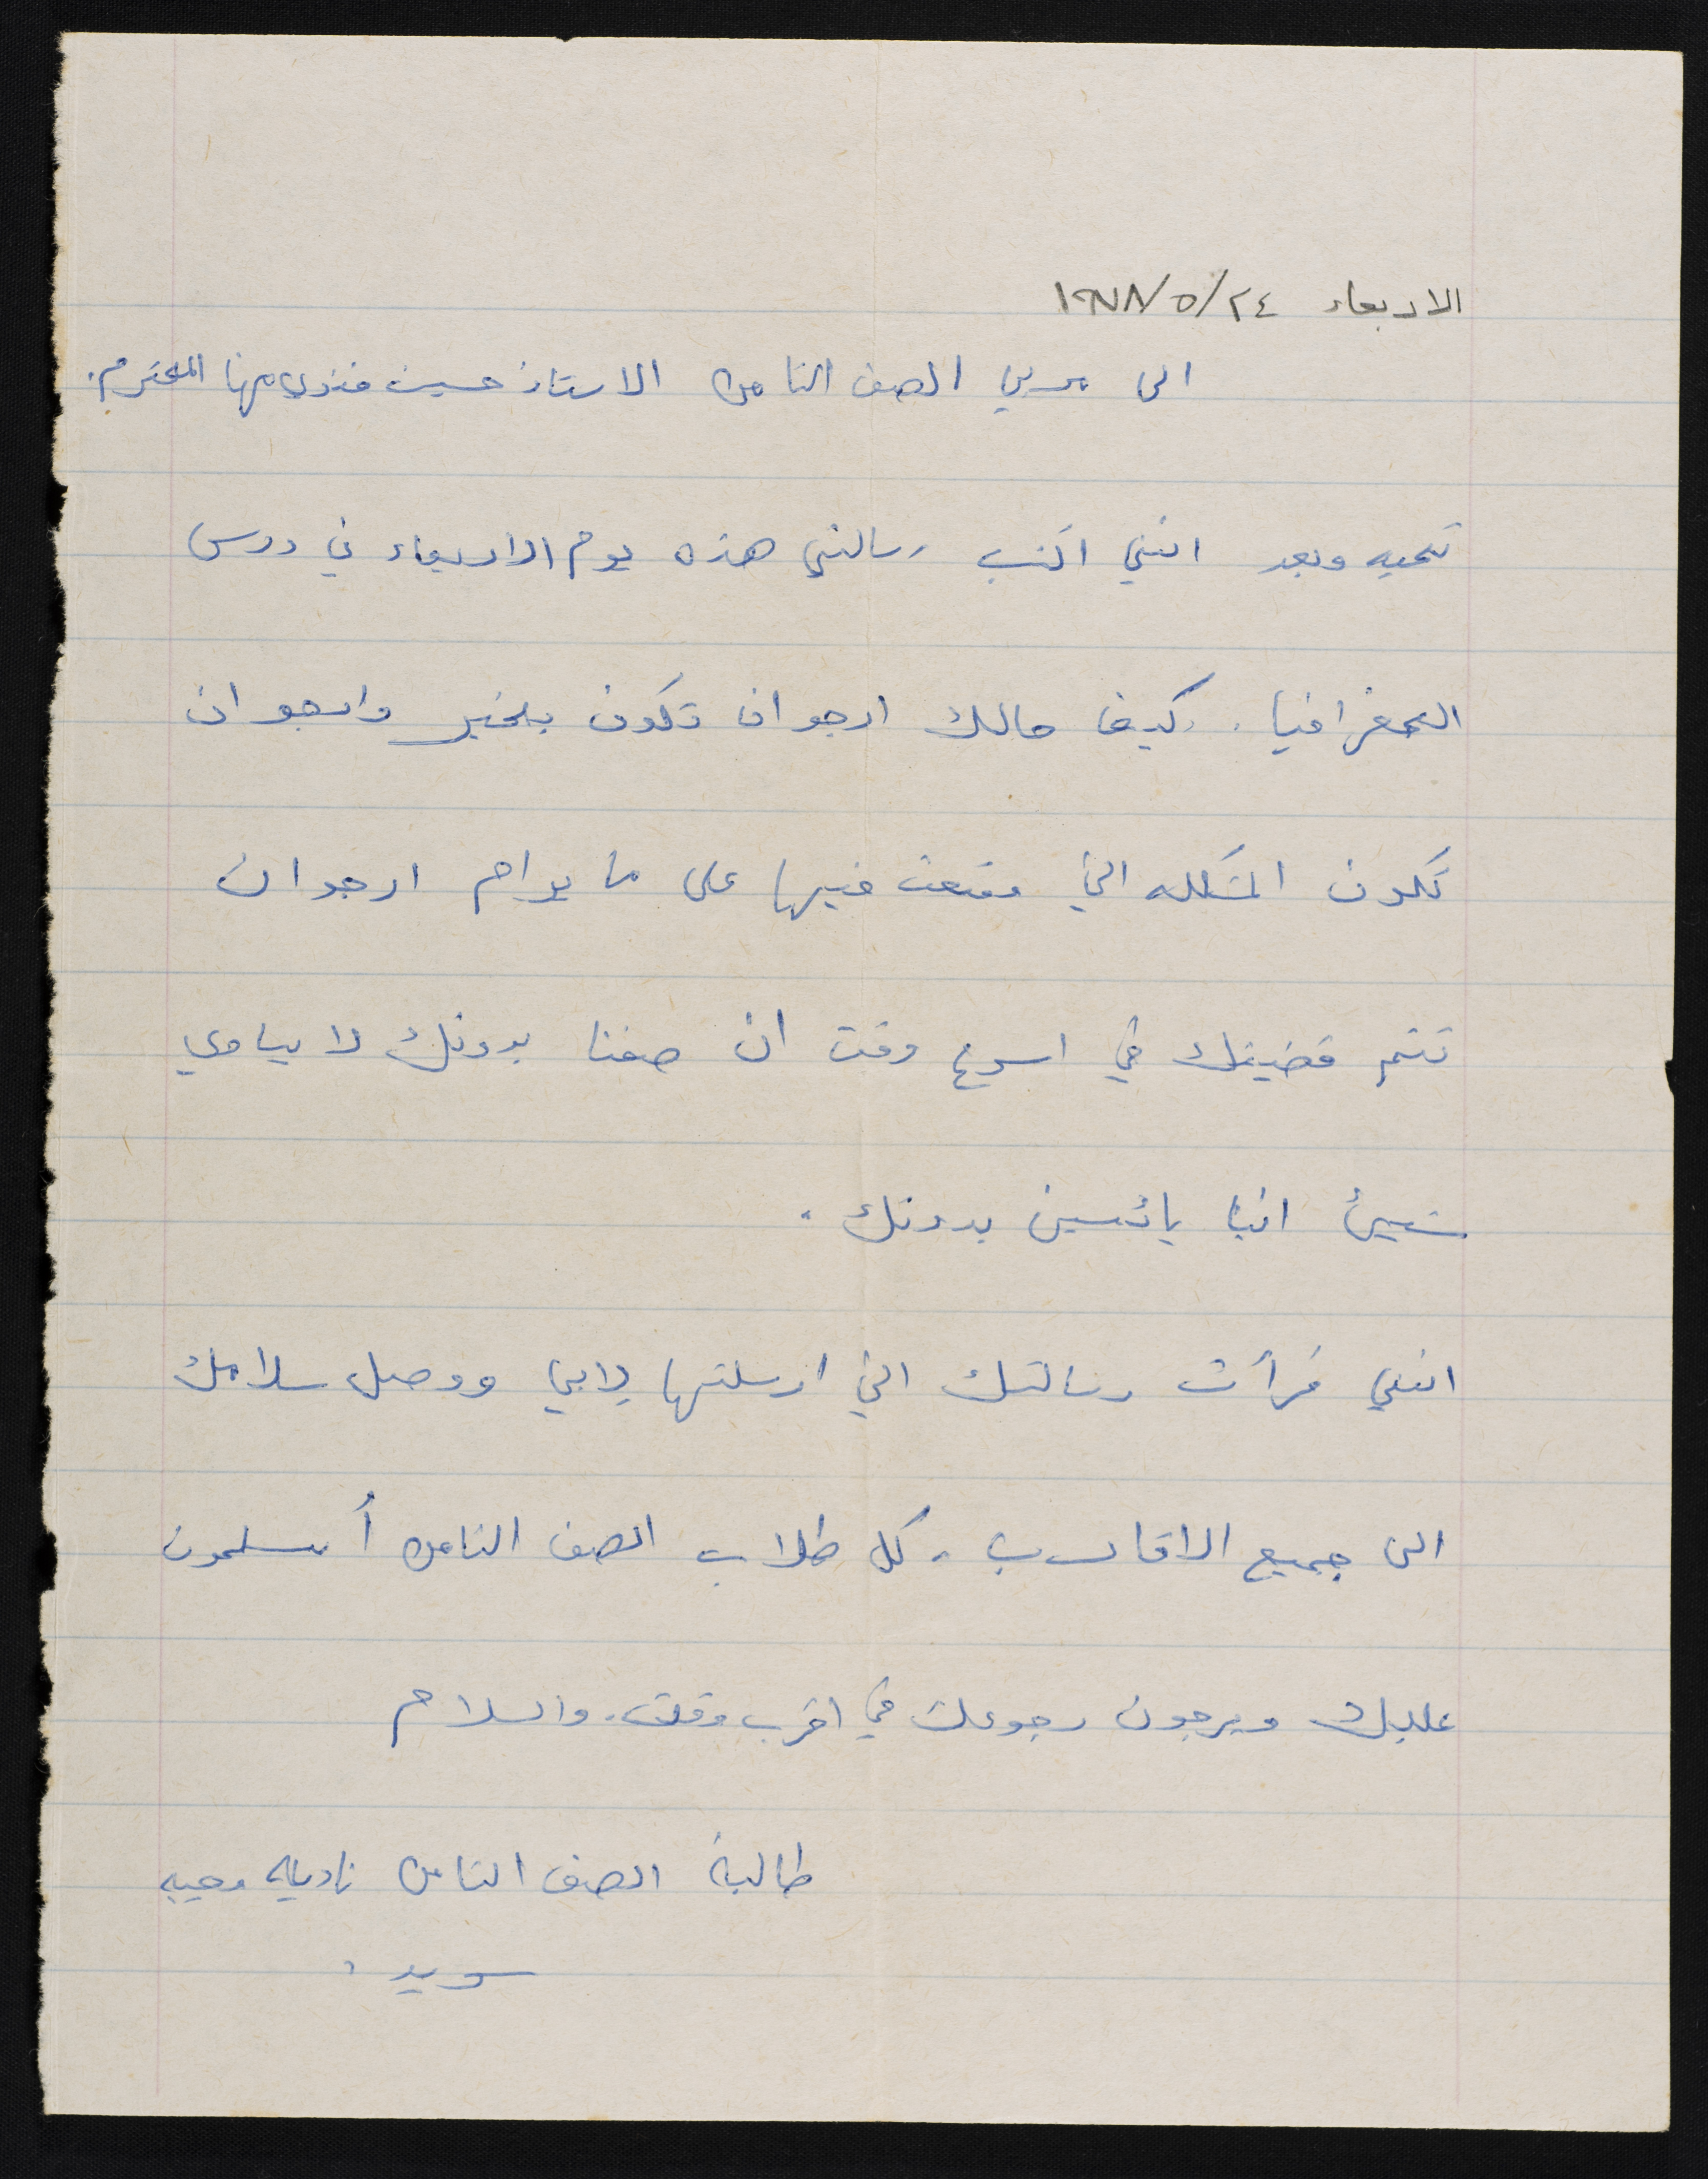 الاربعاء ٢٤/٥/١٩٧٨
الى مربي الصف الثامن الاستاذ حسين فندي مهنا المحترم.
تحيه وبعد انني اكتب رسالتي هذه يوم الاربعاء في درس
الجغرافيا. كيف حالك ارجو ان تكون بخير وارجو ان
تكون المشكله التي وقعت فيها على ما يرام ارجو ان
تتم قضيتك في اسرع وقت ان صفنا بدونك لا يساوي
شيئ اننا يائسين بدونك.
انني قرأت رسالتك التي ارسلتها لابي ووصل سلامك
الى جميع الاقارب. كل طلاب الصف الثامن أ يسلمون
عليك ويرجون رجوعك في اقرب وقت. والسلام
طالبة الصف الثامن ناديه
سويد.